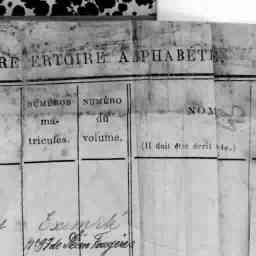 RE ERTOIRE ALPHABÉT
NUMÉROS
ma-
tricules.
NUMÉRO
du
volume.
NOM
(Il doit être écrit
Exempté
de Fougères